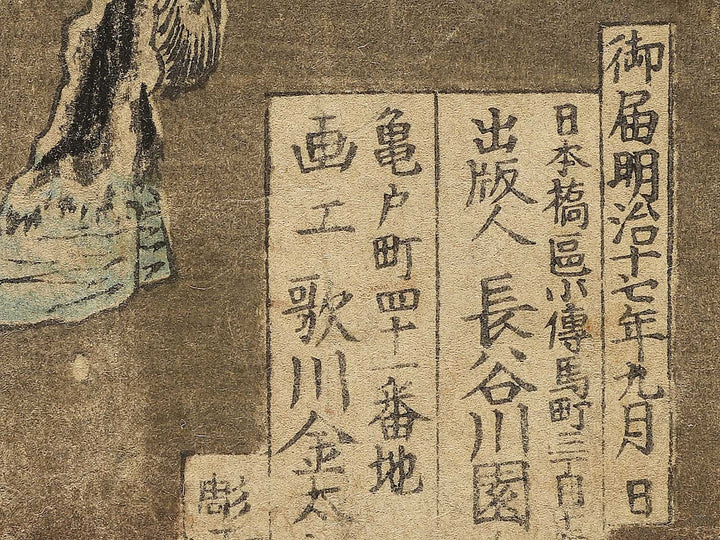 御届明治十七年九月 日
日本橋區小傳馬町三丁目
出版人 長谷川園
亀戸町四十一番地
画工 歌川金太
彫